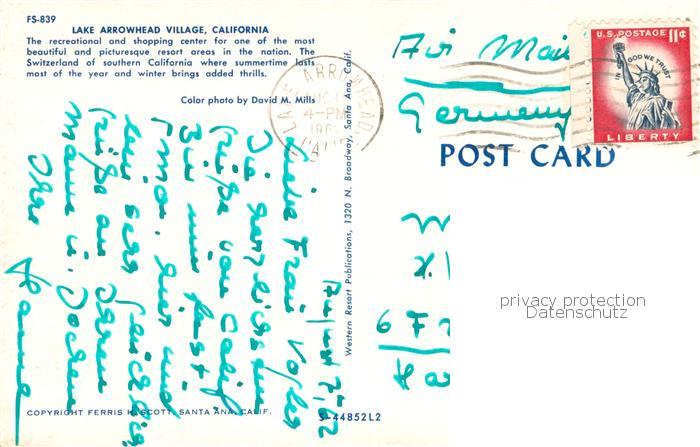 FS-839
LAKE ARROWHEAD VILLAGE, CALIFORNIA
The recreational and shopping center for one of the most
beautiful and picturesque resort areas in the nation. The
Switzerland of southern California where summertime lasts
most of the year and winter brings added thrills.
Color photo by David M. Mills
LAKE ARROWHEAD
4-PM
CALIF.
Air Mail
Germany
U.S. POSTAGE 11¢
IN GOD WE TRUST
LIBERTY
POST CARD
Western Resort Publications, 1320 N. Broadway, Santa Ana, Calif.
August 7, 62
Liebe Frau
Die herzlichsten
Grüße von Calif.
Bin nun fast
1 Mon. hier und
sehr
Grüße an Ihren
Mann u.
Ihre Hanna
6 F
privacy protection
Datenschutz
COPYRIGHT FERRIS H. SCOTT, SANTA ANA, CALIF.
S-44852L2